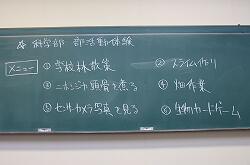 ☆ 科学部 部活動体験
メニュー
① 学校林散策
② スライム作り
③ ニホンジカ頭骨を煮る
④ 畑作業
⑤ センサーカメラ写真を見る
⑥ 生物カードゲーム